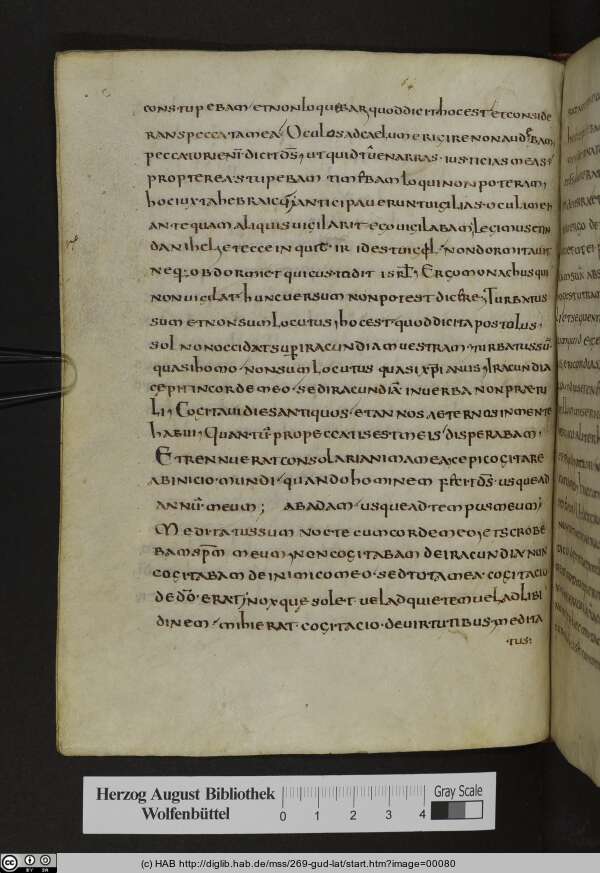 constupebam et non loquebar quod dicit hoc est et conside
rans peccata mea; Oculos ad caelum erigire non audebam
peccatori enim dicit ds; ut quid tu enarras iusticias meas;
propterea stupebam timebam loqui non poteram,
hoc iuxta hebraicum; anticipauerunt uigilias oculi mei
antequam aliquis uigilarit ego uigilabam; Legimus et in
danihel; et ecce in quit ir id est uigil non dormitauit
neq; obdormiet qui custodit isrl; Ergo monachus qui
non uigilat hunc uersum non potest dicere; Turbatus
sum et non sum locutus; hoc est quod dicit apostolus,
sol non occidat super iracundiam uestram turbatus su
quasi homo non sum locutus quasi xpianus; Iracundia
cepit in corde meo sed iracundia in uerba non praetu
li; Cogitaui dies antiquos et annos aeternos in mente
habui; Quantu pro peccatis est meis disperabam,
Et rennuerat consolari anima mea cepi cogitare
ab inicio mundi quando hominem fecit ds usque ad
annu meum; ab adam usque ad tempus meum;
Meditatus sum nocte cum corde meo; et scrobe
bam spm meum; non cogitabam de iracundia non
cogitabam de inimico meo sed tota mea cogitacio
de do erat; nox que solet uel ad quietem uel ad libi
dinem mihi erat cogitacio de uirtutibus; medita
tus:
Herzog August Bibliothek
Wolfenbüttel
0 1 2 3 4
Gray Scale
cc BY SA
(c) HAB http://diglib.hab.de/mss/269-gud-lat/start.htm?image=00080